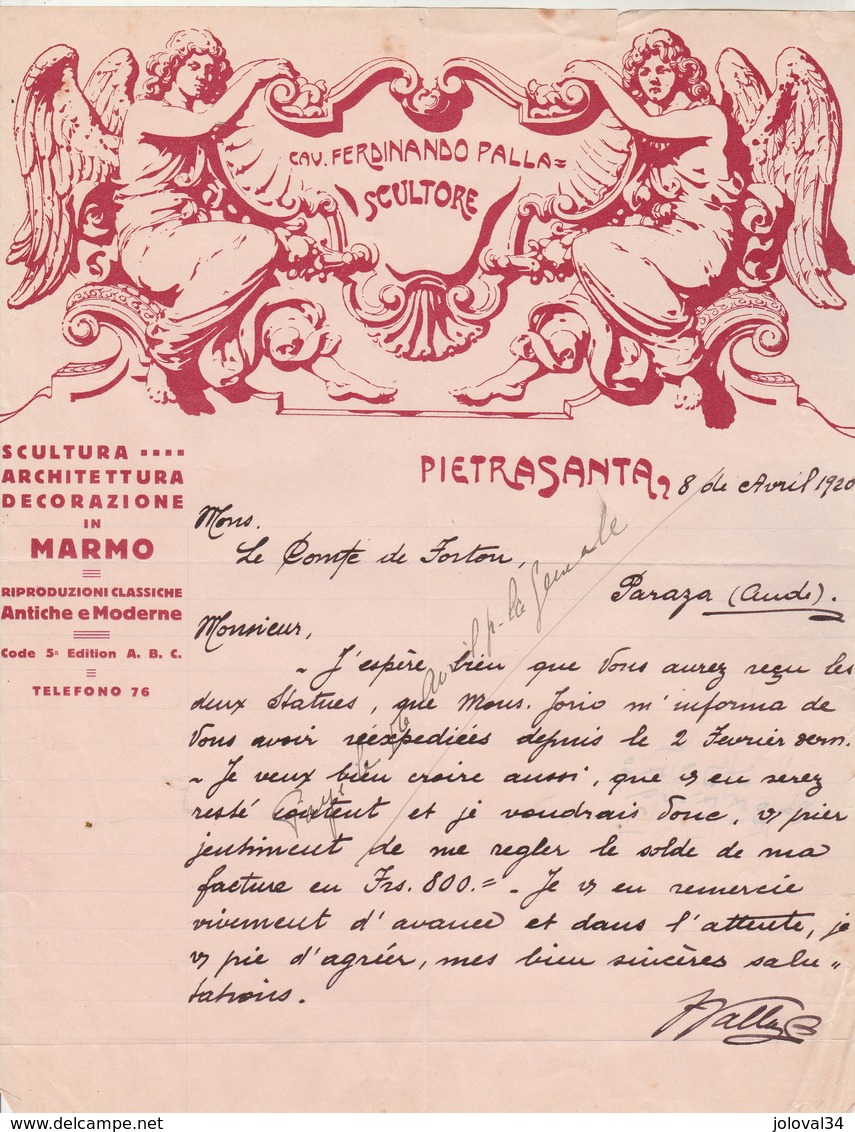 CAV. FERDINANDO PALLA
SCULTORE
SCULTURA
ARCHITETTURA
DECORAZIONE
IN
MARMO
RIPRODUZIONI CLASSICHE
Antiche e Moderne
Code 5ª Edition A. B. C.
TELEFONO 76
PIETRASANTA, 8 de Avril 1920
Mons.
Le Comte de Forton,
Paraza (Aude).
Monsieur,
J'espère bien que Vous aurez reçu les
deux Statues, que Mons. Jorio m'informa de
Vous avoir réexpediées depuis le 2 Fevrier dern.
- Je veux bien croire aussi, que vs en serez
resté content et je voudrais donc, vs prier
jentiment de me regler le solde de ma
facture en Frs. 800.= - Je vs en remercie
vivement d'avance et dans l'attente, je
vs pie d'agréer, mes bien sincères salu-
tations.
FPalla
Avril p. la Generale
joloval34